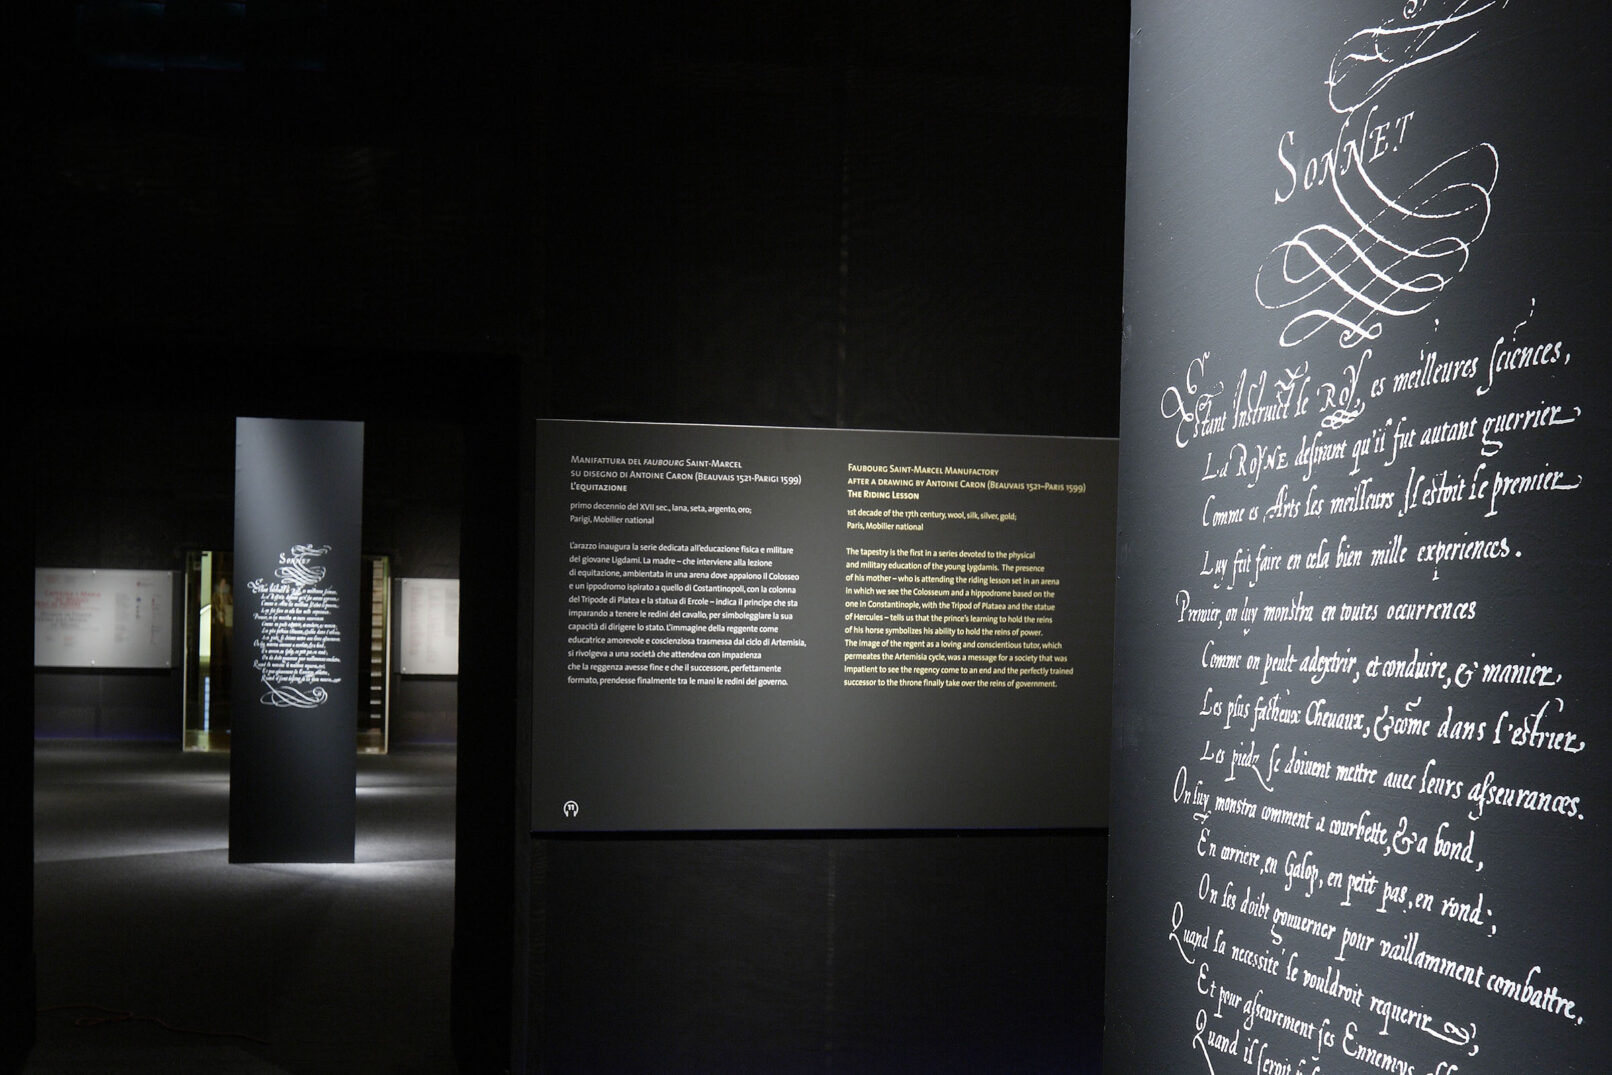 MANIFATTURA DEL FAUBOURG SAINT-MARCEL
SU DISEGNO DI ANTOINE CARON (BEAUVAIS 1521-PARIGI 1599)
L'EQUITAZIONE
primo decennio del XVII sec., lana, seta, argento, oro;
Parigi, Mobilier national
L'arazzo inaugura la serie dedicata all'educazione fisica e militare
del giovane Ligdami. La madre – che interviene alla lezione
di equitazione, ambientata in una arena dove appaiono il Colosseo
e un ippodromo ispirato a quello di Costantinopoli, con la colonna
del Tripode di Platea e la statua di Ercole – indica il principe che sta
imparando a tenere le redini del cavallo, per simboleggiare la sua
capacità di dirigere lo stato. L'immagine della reggente come
educatrice amorevole e coscienziosa trasmessa dal ciclo di Artemisia,
si rivolgeva a una società che attendeva con impazienza
che la reggenza avesse fine e che il successore, perfettamente
formato, prendesse finalmente tra le mani le redini del governo.
11
FAUBOURG SAINT-MARCEL MANUFACTORY
AFTER A DRAWING BY ANTOINE CARON (BEAUVAIS 1521–PARIS 1599)
THE RIDING LESSON
1st decade of the 17th century, wool, silk, silver, gold;
Paris, Mobilier national
The tapestry is the first in a series devoted to the physical
and military education of the young Lygdamis. The presence
of his mother – who is attending the riding lesson set in an arena
in which we see the Colosseum and a hippodrome based on the
one in Constantinople, with the Tripod of Plataea and the statue
of Hercules – tells us that the prince's learning to hold the reins
of his horse symbolizes his ability to hold the reins of power.
The image of the regent as a loving and conscientious tutor, which
permeates the Artemisia cycle, was a message for a society that was
impatient to see the regency come to an end and the perfectly trained
successor to the throne finally take over the reins of government.
SONNET
Estant Instruict le ROY, es meilleures sciences,
La ROYNE desirant qu'il fut autant guerrier
Comme es Arts les meilleurs Il estoit le premier
Luy feit faire en cela bien mille experiences.
Premier, on luy monstra en toutes occurrences
Comme on peult adextrir, et conduire, & manier,
Les plus facheux Cheuaux, & cõme dans l'estrier,
Les piedz se doiuent mettre auec leurs asseurances.
On luy monstra comment a courbette, & a bond,
En carriere, en Galop, en petit pas, en rond;
On les doibt gouuerner pour vaillamment combattre,
Quand la necessité le vouldroit requerir;
Et pour asseurement ses Ennemys
Quand il seroit
SONNET